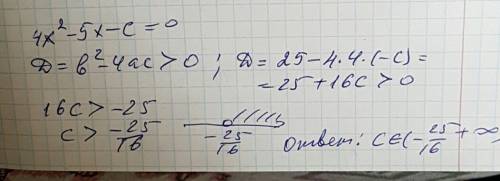 4x² - 5x - c = 0
D = b² - 4ac > 0 ; D = 25 - 4·4·(-c) =
= 25 + 16c > 0
16c > -25
c > -25/16
-25/16
Ответ: c∈(-25/16 + ∞)